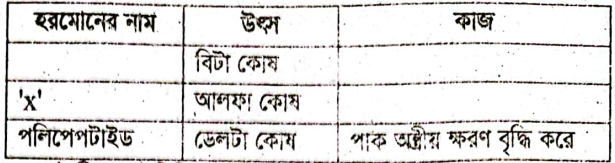 হরমোনের নাম উৎস কাজ
বিটা কোষ
'x' আলফা কোষ
পলিপেপটাইড ডেলটা কোষ পাক অন্ত্রীয় ক্ষরণ বৃদ্ধি করে